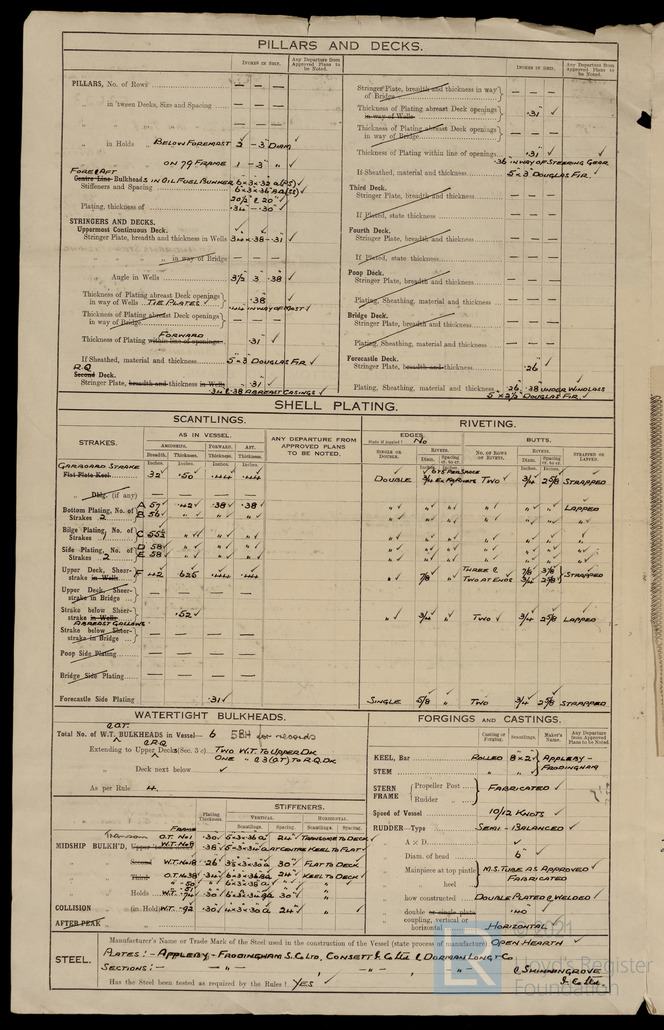 PILLARS AND DECKS.
INCHES IN SHIP.
Any Departure from Approved Plans to be Noted.
PILLARS, No. of Rows
in 'tween Decks, Size and Spacing
" in Holds BELOW FOREMAST 2 - 3" DIAM
ON 79 FRAME 1 - 3" " ✓
FORE & AFT
Centre Line Bulkheads IN OIL FUEL BUNKER 6 x 3 x .32
Stiffeners and Spacing 6 x 3 x .36
Plating, thickness of .34 - .30 ✓
STRINGERS AND DECKS.
Uppermost Continuous Deck.
Stringer Plate, breadth and thickness in Wells 34 x .38 - .31 ✓
" " in way of Bridge
Angle in Wells 3½ 3 .38 ✓
Thickness of Plating abreast Deck openings in way of Wells TIE PLATES ✓ .38
.44 IN WAY OF MAST ✓
Thickness of Plating abreast Deck openings in way of Bridge
FORWARD
Thickness of Plating within line of openings .31 ✓
If Sheathed, material and thickness 5 x 3" DOUGLAS FIR ✓
R.Q.
Second Deck.
Stringer Plate, breadth and thickness in Wells .31 ✓
.34 & .38 ABREAST CASINGS ✓
INCHES IN SHIP.
Any Departure from Approved Plans to be Noted.
Stringer Plate, breadth and thickness in way of Bridge
Thickness of Plating abreast Deck openings in way of Wells .31 ✓
Thickness of Plating abreast Deck openings in way of Bridge
Thickness of Plating within line of openings .31 ✓
.36 IN WAY OF STEERING GEAR
If Sheathed, material and thickness 5 x 3" DOUGLAS FIR ✓
Third Deck.
Stringer Plate, breadth and thickness
If Plated, state thickness
Fourth Deck.
Stringer Plate, breadth and thickness
If Plated, state thickness
Poop Deck.
Stringer Plate, breadth and thickness
Plating, Sheathing, material and thickness
Bridge Deck.
Stringer Plate, breadth and thickness
Plating, Sheathing, material and thickness
Forecastle Deck.
Stringer Plate, breadth and thickness .26 ✓
Plating, Sheathing, material and thickness .26 .38 UNDER WINDLASS
5 x 2½" DOUGLAS FIR ✓
SHELL PLATING.
SCANTLINGS.
RIVETING.
STRAKES.
AS IN VESSEL.
AMIDSHIPS. FORWARD. AFT.
Breadth. Thickness. Thickness. Thickness.
ANY DEPARTURE FROM APPROVED PLANS TO BE NOTED.
EDGES. No
State if joggled?
BUTTS.
SINGLE OR DOUBLE.
RIVETS.
Diam. Spacing cr. to cr.
NO. OF ROWS OF RIVETS.
RIVETS.
Diam. Spacing cr. to cr.
STRAPPED OR LAPPED.
Inches. Inches. Inches. Inches.
GARBOARD STRAKE
Flat Plate Keel 32 .50 .444 .444 DOUBLE ¾ TWO ¾ 2⅝ STRAPPED
" Dblg. (if any)
Bottom Plating, No. of Strakes 2 A 57 .42 .38 .38 LAPPED
B 56 " " "
Bilge Plating, No. of Strakes 1 C 55½ " " "
Side Plating, No. of Strakes 2 D 58 " " "
E 58 " " "
Upper Deck, Sheer-strake in Wells F 42 .625 .444 .444 " ⅞ " THREE & ⅞ 3⅛ STRAPPED
TWO AT ENDS ¾ 2⅝
Upper Deck, Sheer-strake in Bridge
Strake below Sheer-strake in Wells .52 " ¾ " TWO ¾ 2⅝ LAPPED
ABREAST GALLOWS
Strake below Sheer-strake in Bridge
Poop Side Plating
Bridge Side Plating
Forecastle Side Plating .31 ✓ SINGLE ⅝ " TWO ¾ 2⅝ STRAPPED
WATERTIGHT BULKHEADS.
& O.T.
Total No. of W.T. BULKHEADS in Vessel— 6 5BH for records
& R.Q.
Extending to Upper Decks (Sec. 3 c) TWO W.T. TO UPPER DK
ONE " & 3 (OT) TO R.Q. DK
" Deck next below ✓
As per Rule 4.
Plating Thickness.
STIFFENERS.
VERTICAL. HORIZONTAL.
Scantlings. Spacing. Scantlings. Spacing.
FRAME
Transom O.T. No 1 .30 24" TRANSOM TO DECK
MIDSHIP BULK'D, Upper W.T. No 9 .38 AT CENTRE KEEL TO FLAT
" Second W.T. No 18 .26 30" FLAT TO DECK
" Third O.T. No 38 .34 24" KEEL TO DECK
" " 50
" 51
" Holds W.T. 74 .30 30"
COLLISION " (in Hold) W.T. 92 .30 4 x 3 x .30 24"
AFTER PEAK "
FORGINGS AND CASTINGS.
Casting or Forging. Scantlings. Maker's Name. Any Departure from Approved Plans to be Noted.
KEEL, Bar ROLLED 8 x 2 ✓ APPLEBY-
STEM " " ✓ FRODINGHAM
STERN FRAME { Propeller Post
Rudder " } FABRICATED ✓
Speed of Vessel 10/12 KNOTS ✓
RUDDER—Type SEMI - BALANCED ✓
" A x D ✓
" Diam. of head 6" ✓
" Mainpiece at top pintle M.S. TUBE AS APPROVED
" heel FABRICATED
" how constructed DOUBLE PLATED & WELDED
" double or single plate .40 ✓
" coupling, vertical or horizontal HORIZONTAL ✓
STEEL.
Manufacturer's Name or Trade Mark of the Steel used in the construction of the Vessel (state process of manufacture) OPEN HEARTH ✓
PLATES :- APPLEBY - FRODINGHAM S. Co LTD, CONSETT I. Co Ltd & DORMAN LONG & Co
SECTIONS :- " " " & SKINNINGROVE
I. Co Ltd.
Has the Steel been tested as required by the Rules? YES ✓
LR
© 2021
Lloyd's Register
Foundation